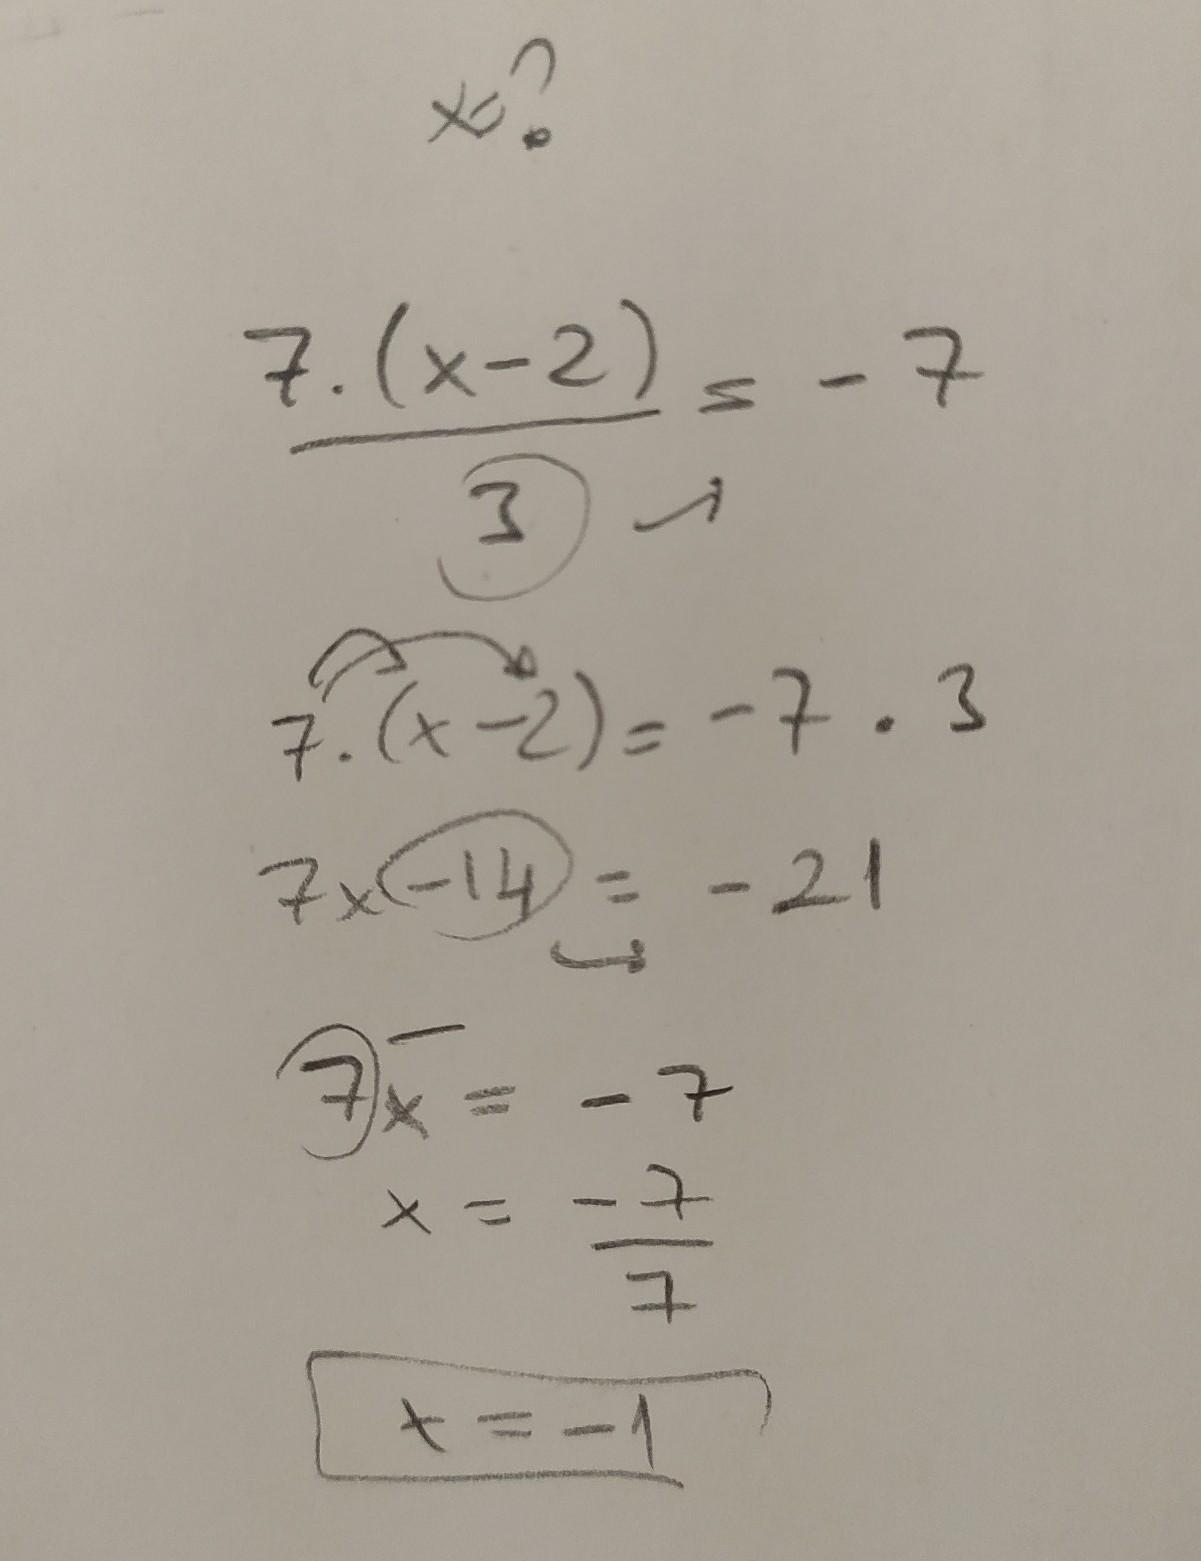 x=?
7.(x-2) = -7
3
7.(x-2) = -7 . 3
7x-14 = -21
7x = -7
x = -7
7
x = -1